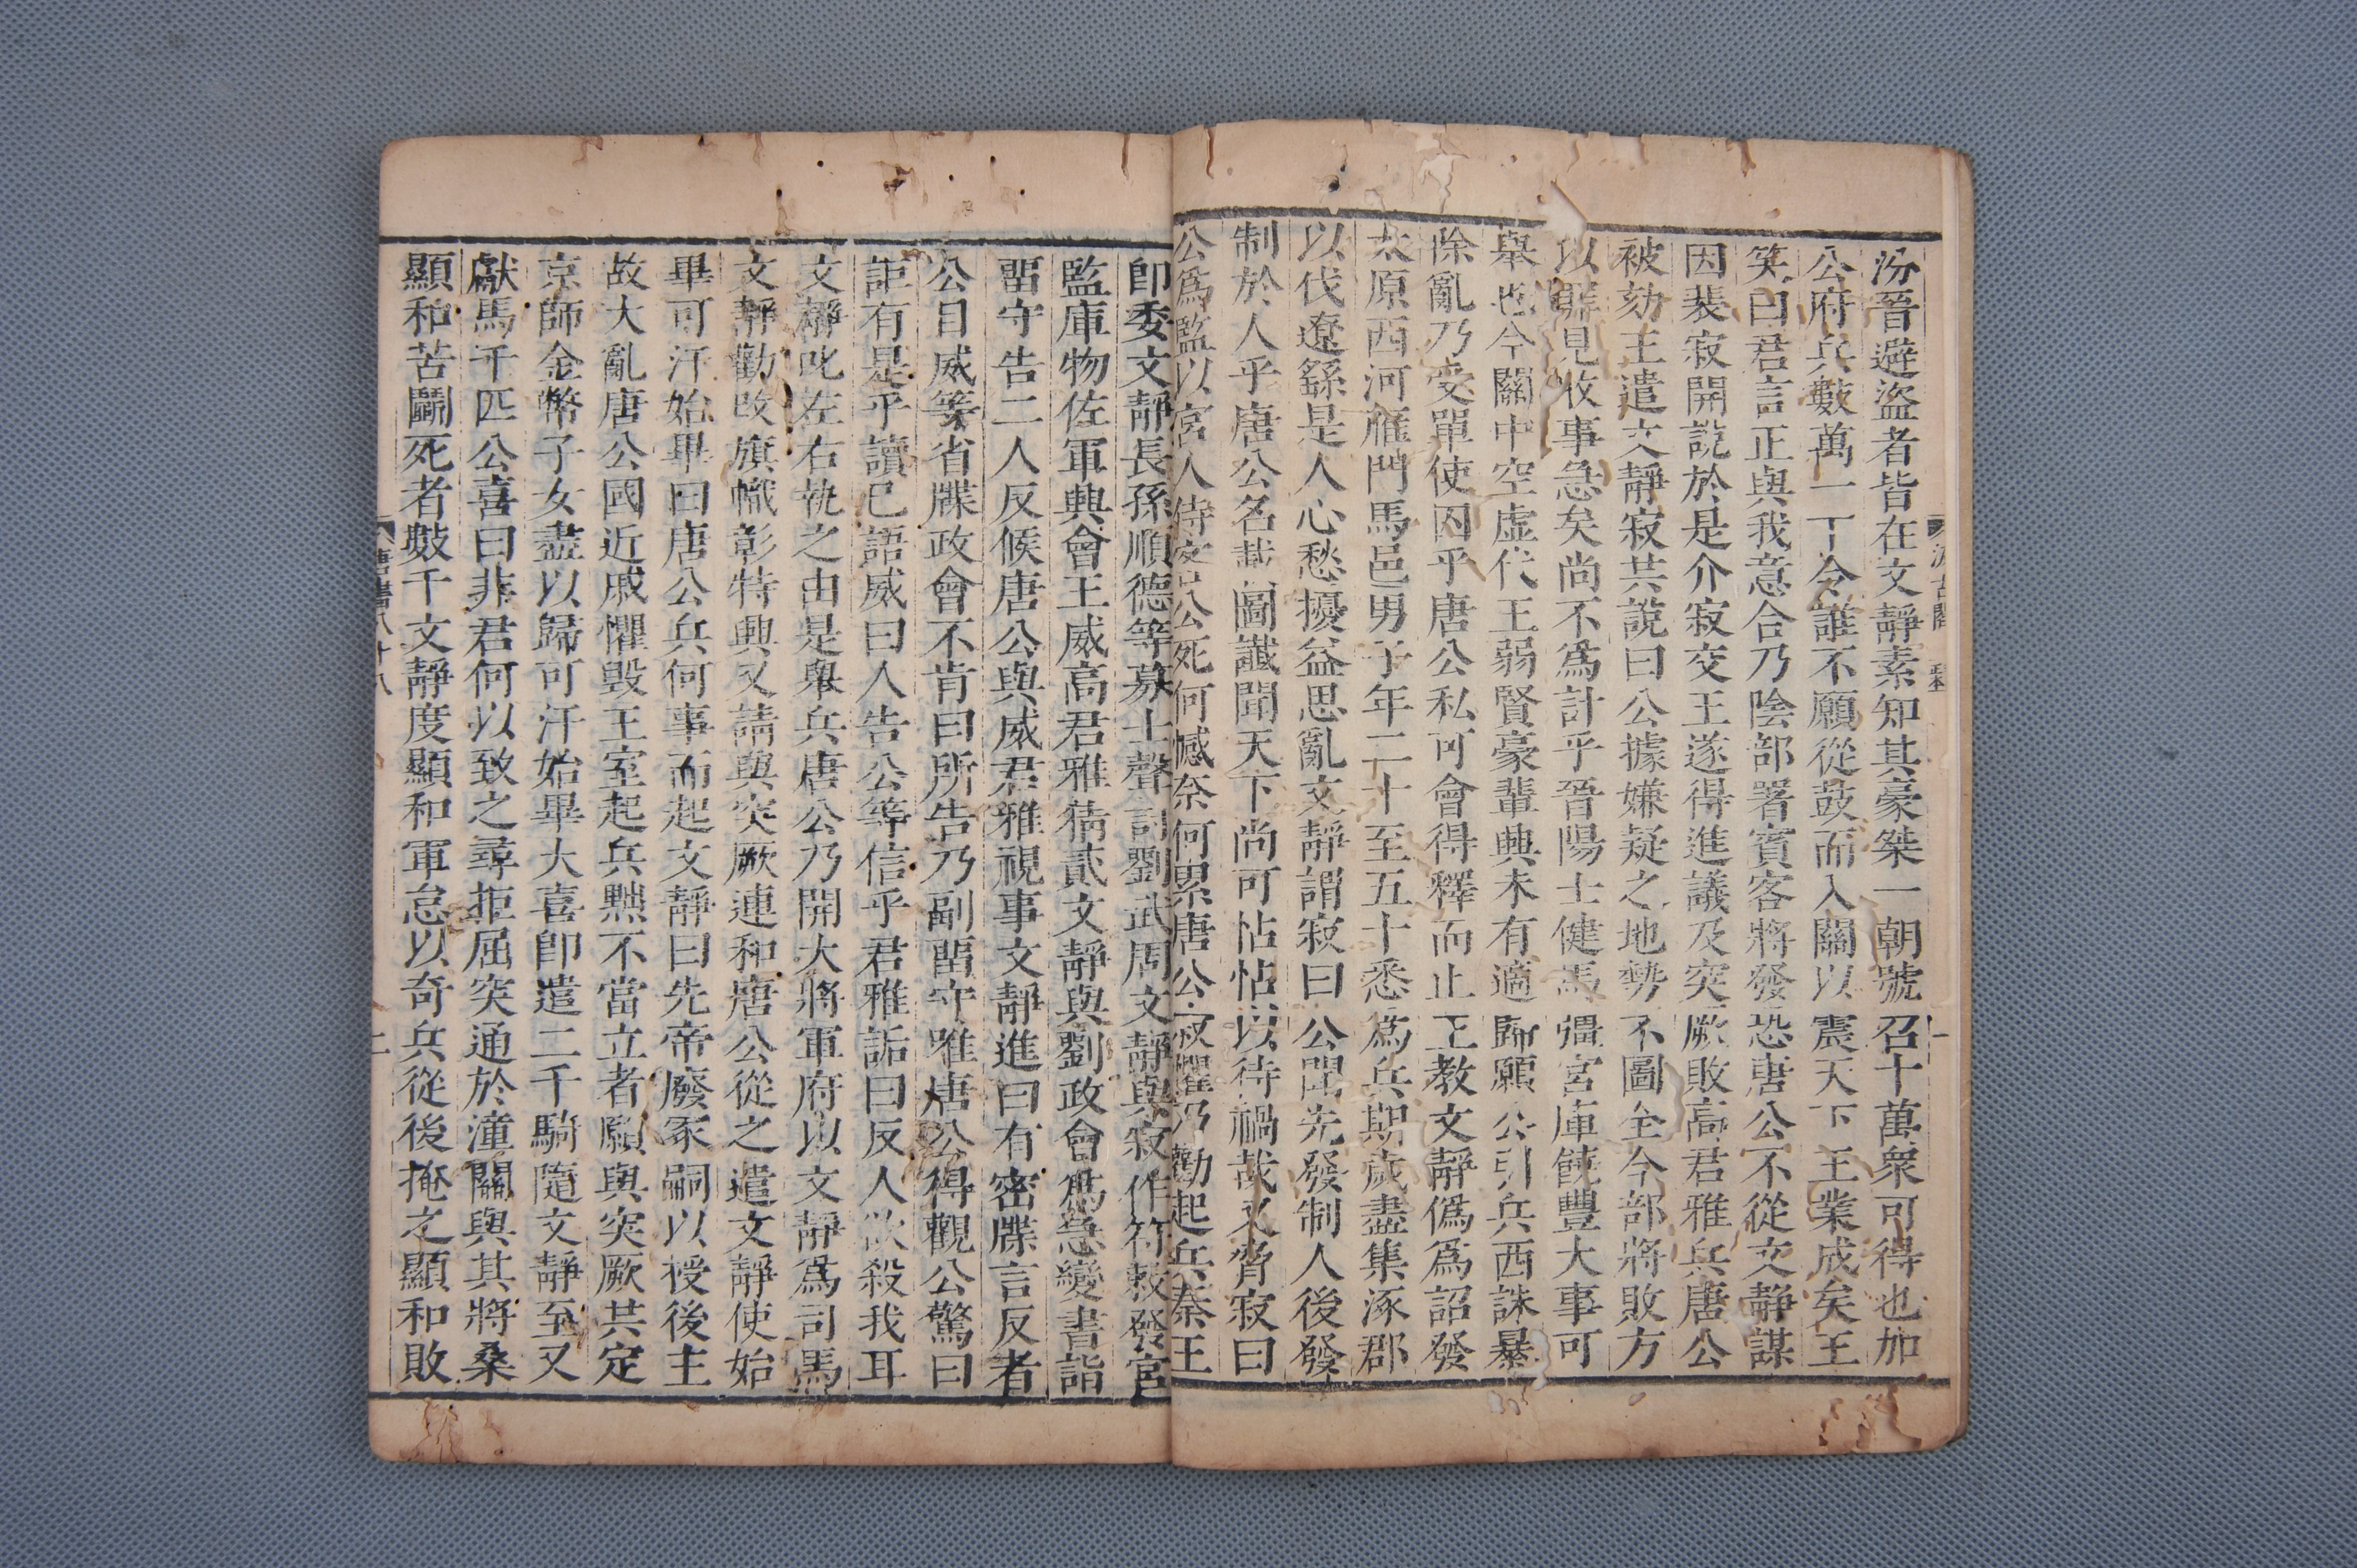 汾晉避盜者皆在文靜素知其豪桀一朝號召十萬衆可得也加
公府兵數萬一下令誰不願從鼓而入關以震天下王業成矣王
笑曰君言正與我意合乃陰部署賓客將發恐唐公不從文靜謀
因裴寂開說於是介寂交王遂得進議及突厥敗高君雅兵唐公
被劾王遣文靜寂共說曰公據嫌疑之地勢不圖全今部將敗方
以罪見收事急矣尚不爲計乎晉陽士健馬彊宮庫饒豐大事可
舉也今關中空虛代王弱賢豪輩興未有適歸願公引兵西誅暴
除亂乃受單使囚乎唐公私可會得釋而止王教文靜僞爲詔發
太原西河雁門馬邑男子年二十至五十悉爲兵期歲盡集涿郡
以伐遼繇是人心愁擾益思亂文靜謂寂曰公聞先發制人後發
制於人乎唐公名載圖讖聞天下尚可怗怗以待禍哉又脅寂曰
公爲監以宮人侍客公死何憾奈何累唐公寂懼乃勸起兵秦王
卽委文靜長孫順德等募士聲討劉武周文靜與寂作符敕發宮
監庫物佐軍興會王威高君雅猜貳文靜與劉政會爲急變書詣
留守告二人反候唐公與威君雅視事文靜進曰有密牒言反者
公目威等省牒政會不肯曰所告乃副留守唯唐公得觀公驚曰
詎有是乎讀已語威曰人告公等信乎君雅詬曰反人欲殺我耳
文靜叱左右執之由是舉兵唐公乃開大將軍府以文靜爲司馬
文靜勸改旗幟彰特興又請與突厥連和唐公從之遣文靜使始
畢可汗始畢曰唐公兵何事而起文靜曰先帝廢冢嗣以授後主
故大亂唐公國近戚懼毀王室起兵黜不當立者願與突厥共定
京師金幣子女盡以歸可汗始畢大喜卽遣二千騎隨文靜至又
獻馬千匹公喜曰非君何以致之尋拒屈突通於潼關與其將桑
顯和苦鬬死者數千文靜度顯和軍怠以奇兵從後掩之顯和敗
唐書八十八
二
汲古閣